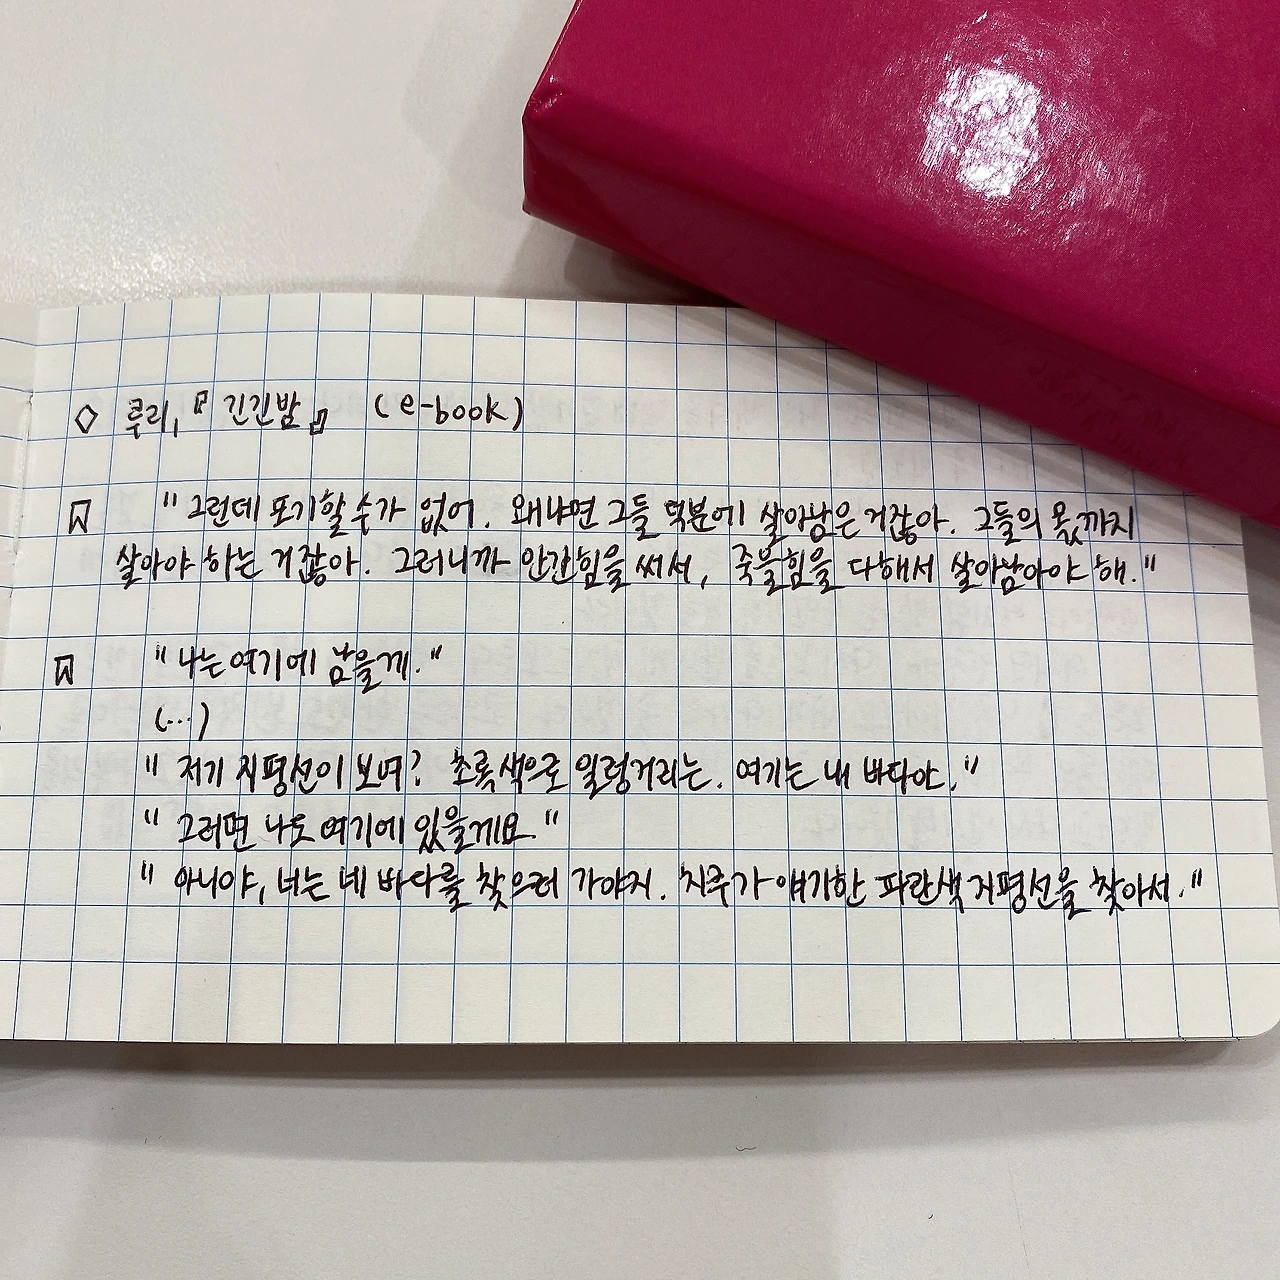 ◇ 루리, 『긴긴밤』 (e-book)
" 그런데 포기할 수가 없어. 왜냐면 그들 덕분에 살아남은 거잖아. 그들의 몫까지
살아야 하는 거잖아. 그러니까 안간힘을 써서, 죽을힘을 다해서 살아남아야 해."
" 나는 여기에 남을게."
(…)
" 저기 지평선이 보여? 초록색으로 일렁거리는. 여기는 내 바다야."
" 그러면 나도 여기에 있을게요."
" 아니야, 너는 네 바다를 찾으러 가야지. 치쿠가 얘기한 파란색 지평선을 찾아서."